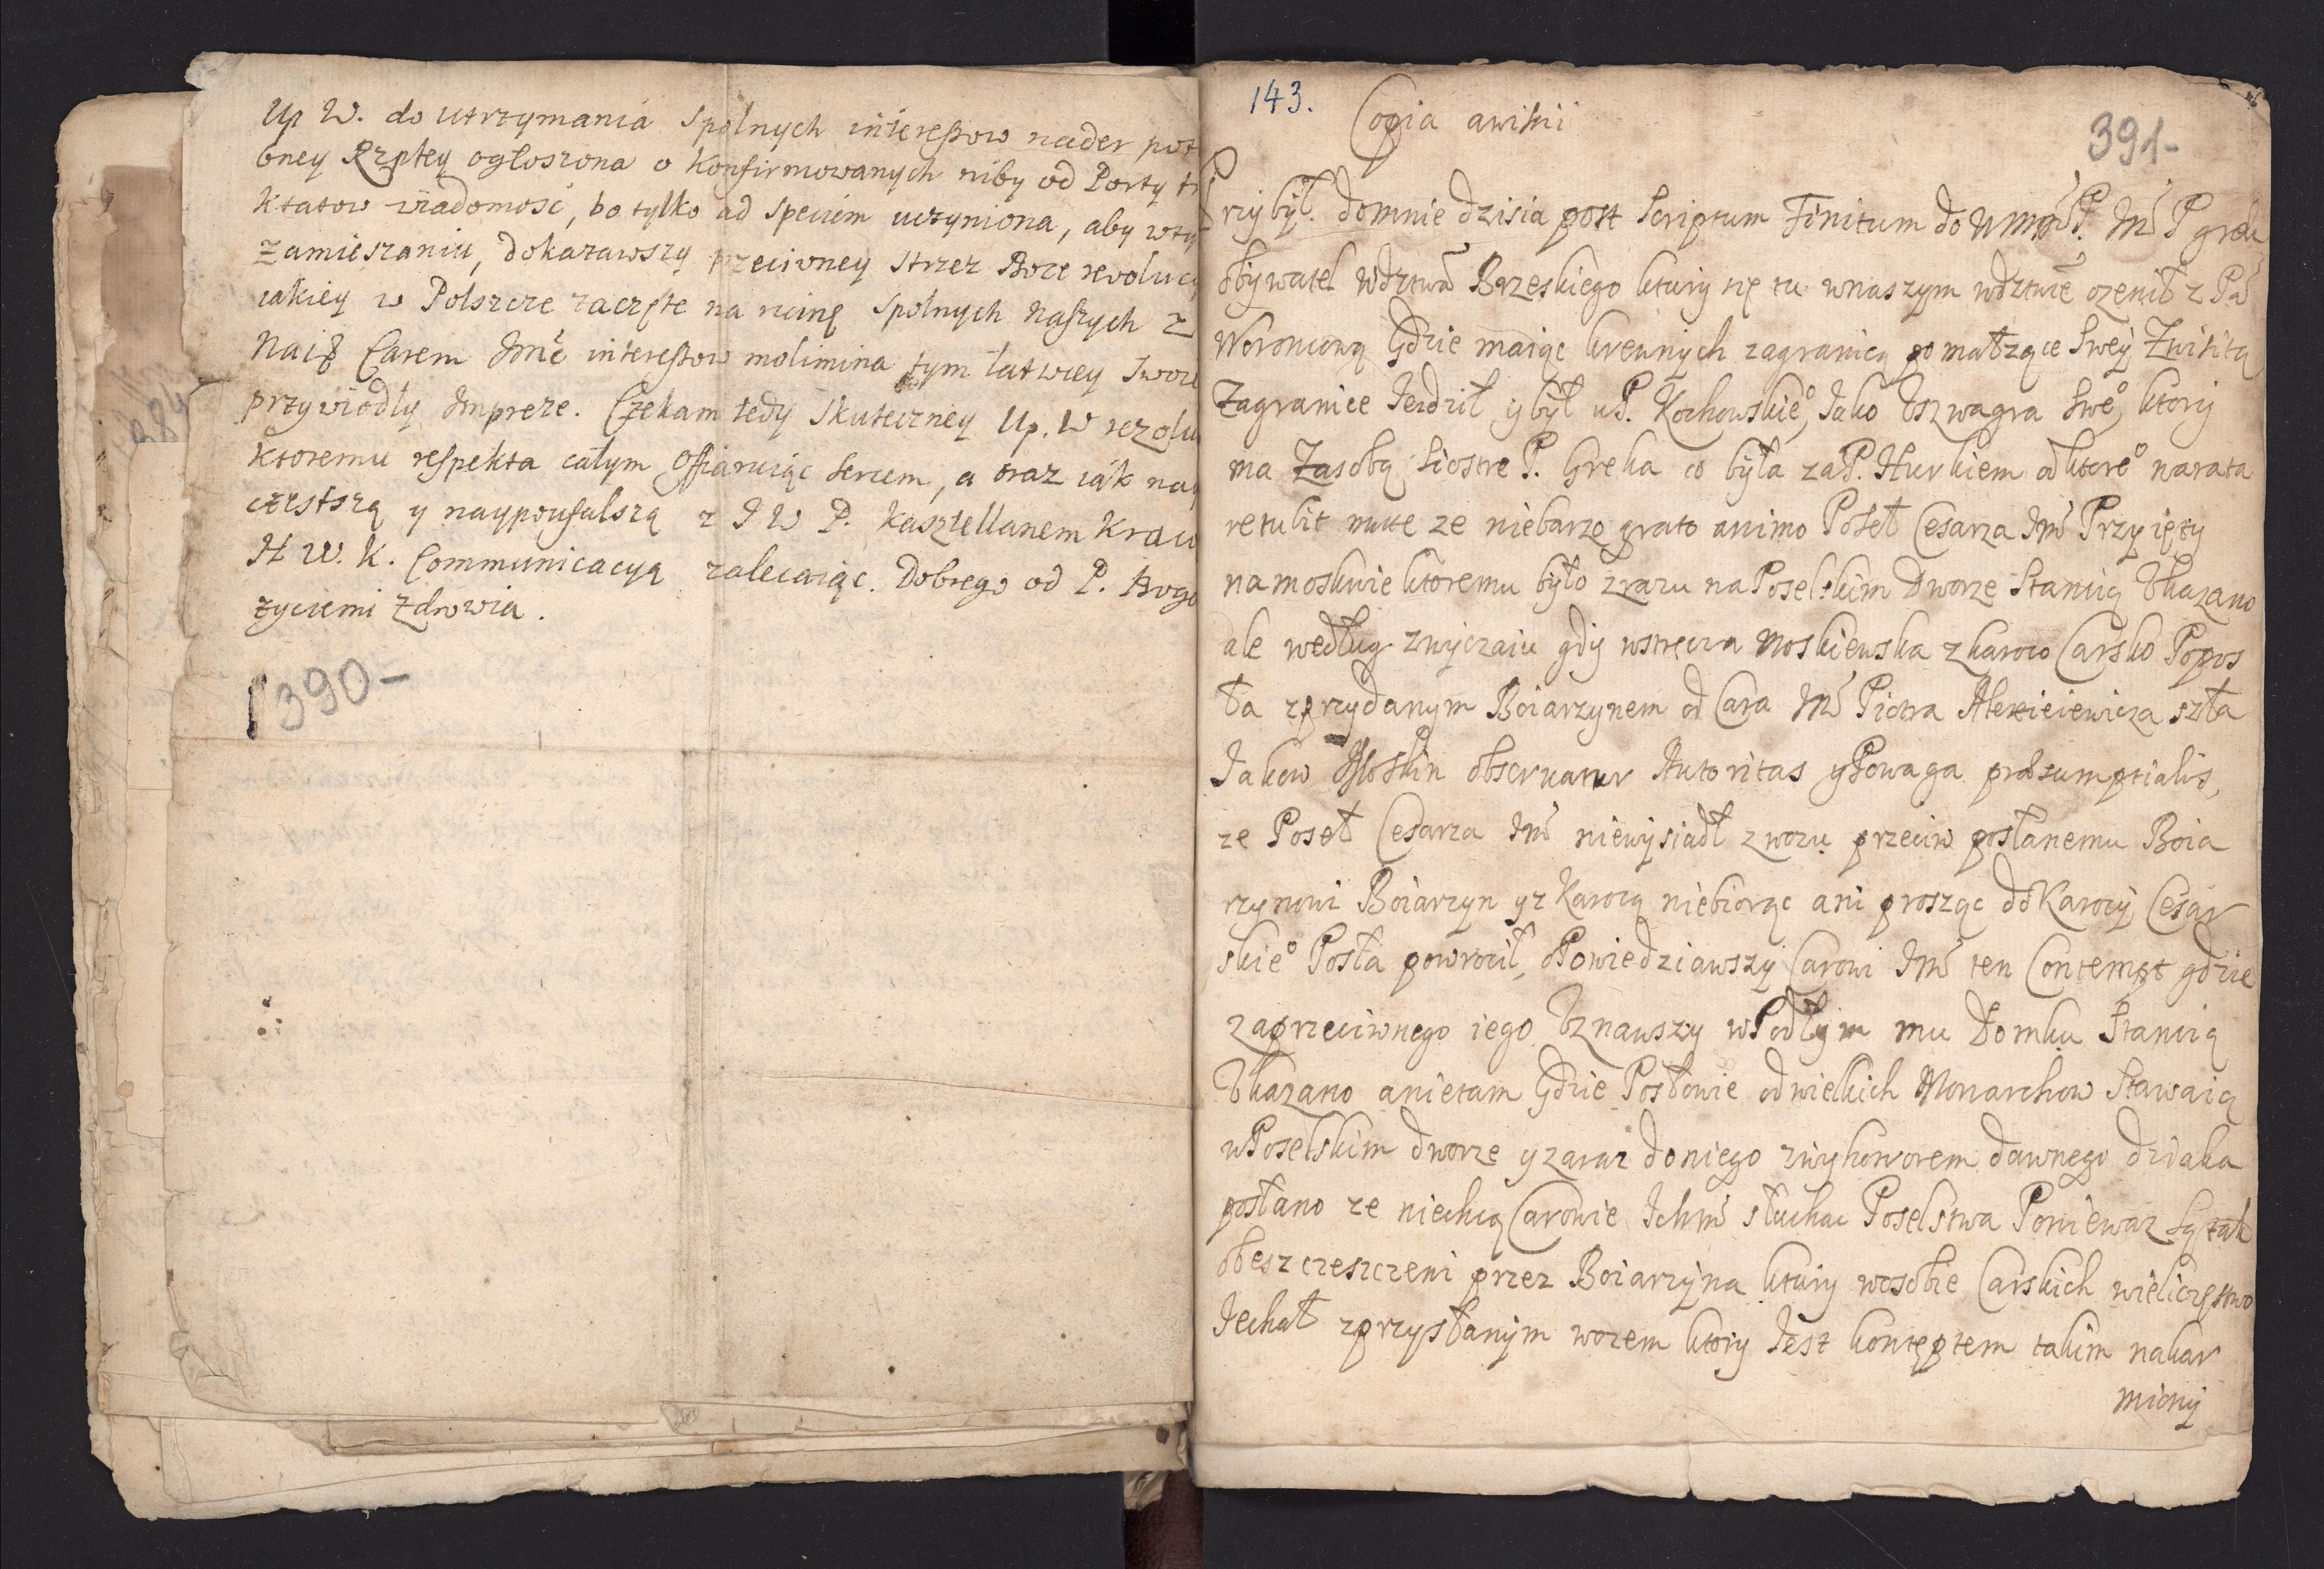 Up W. do utrzymania spolnych interessow nader pot
bney Rzptey ogłoszona o konfirmowanych niby od Porty tr
ktatow wiadomość, bo tylko ad speciem uczyniona, aby w
zamieszaniu, dokazawszy przeciwney strzez Boze rewolucy
iakiey w Polszcze zaczęte na ruinę spolnych naszych z
Naiś Carem Jmć interessow molimina tym łatwiey swoie
przywiodły Impreze. Czekam tedy skuteczney Up. W rezolu
ktoremu respekta całym offiaruiąc sercem, a oraz iák nay
częstszą y naypoufalszą z J W P. Kasztellanem Krau
H W. K. Communicacyą zalecaiąc. Dobrego od P. Boga
życzemi zdrowia.
390-
284
143.
Copia awizii
391-
Przybył do mnie dzisia post Scriptum Finitum do Jmć P grek
obywatel wdztwa Brzeskiego ktury się tu wnaszym wdztwie ozenił z Pą
Woroncową Gdzie maiąc krewnych zagranicą po małzące swey Zwizitą
Zagranice Jezdził y był u P. Kochowskie° Jako Uszwagra swe° ktory
ma Zasobą Siostre P. Greka co była za P. Hurkiem od ktore° narata
retulit ze niebarzo grato animo Poseł Cesarza Jmć Przyięty
namoskwie ktoremu było zrazu na Poselskim Dworze Stancią Ukazano
ale według zwyczaiu gdy wstręcza Moskiewska zkaroco Carsko Popos
ła zprzydanym Boiarzynem od Cara Jmć Piotra Alexieiewicza szła
Jakow observatur Autoritas y Powaga præsumptialis,
ze Poseł Cesarza Jmć niewysiadł zwozu przeciw posłanemu Boia
rzynowi Boiarzyn yz Karocą niebiorąc ani prosząc do Karocy Cesar
skie° Posła powrocił, oPowiedziawszy Carowi Jmć ten Contempt gdzie
zaprzeciwnego iego Uznawszy wPodłym mu Domku Stancią
Ukazano anietam Gdzie Posłowie odwielkich Monarchow Stawaią
wPoselskim dworze y zaraz doniego zwyhoworem dawnego dziaka
posłano ze niechcą Carowie Ichmć słuchac Poselstwa Poniewaz są tak
obeszczeszczeni przez Boiarzyna ktury wosobie Carskich wieliczęstwo
Jechał zprzysłanym wozem ktory Jest kontęptem takim nakar
miony